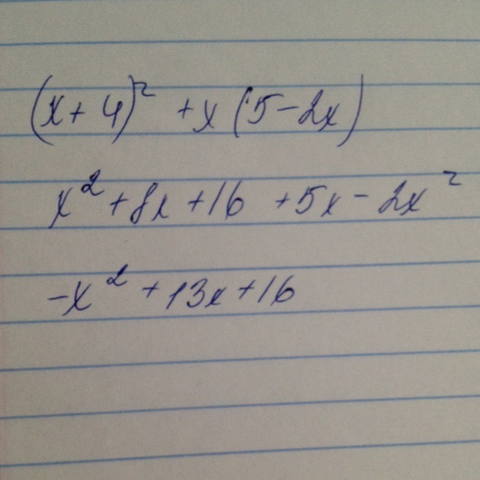 (x+4)² +x(5-2x)
x²+8x+16 +5x-2x²
-x²+13x+16